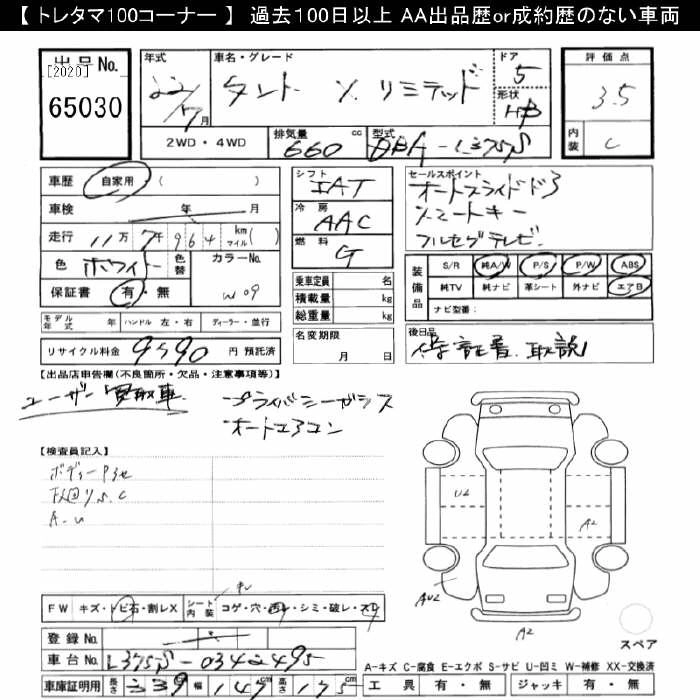 【 トレタマ100コーナー 】 過去100日以上 AA出品歴or成約歴のない車両
出品No.
[2020]
65030
年式 22/7月
車名・グレード タント X リミテッド
ドア 5
形状 HB
2WD・4WD
排気量 660 cc
型式 DBA-L375S
評価点 3.5
内装 C
車歴 自家用 ( )
車検 年 月
走行 11万7千964 km マイル ( )
色 ホワイト 色替 カラーNo. W09
保証書 有・無
モデル年式 年 ハンドル 左・右 ディーラー・並行
リサイクル料金 9590 円 預託済
シフト IAT
冷房 AAC
燃料 G
乗車定員 名
積載量 kg
総重量 kg
名変期限 月 日
セールスポイント
オートスライドドア
スマートキー
フルセグテレビ
装備品
S/R 純A/W P/S P/W ABS
純TV 純ナビ 革シート 外ナビ エアB
ナビ型番:
後日品
保証書、取説
【出品店申告欄(不良箇所・欠品・注意事項等)】
ユーザー買取車
・プライバシーガラス
・オートエアコン
【検査員記入】
ボディー
下回りS.C
A.U
FW キズ・トビ石・割レX シート内装 コゲ・穴・シミ・破レ・スレ
登録No.
車台No. L375S-0342495
車庫証明用 長さ 339 幅 147 cm 高さ 175 cm
U2
A2
AU2
A2
スペア
A-キズ C-腐食 E-エクボ S-サビ U-凹ミ W-補修 XX-交換済
工具 有・無 ジャッキ 有・無